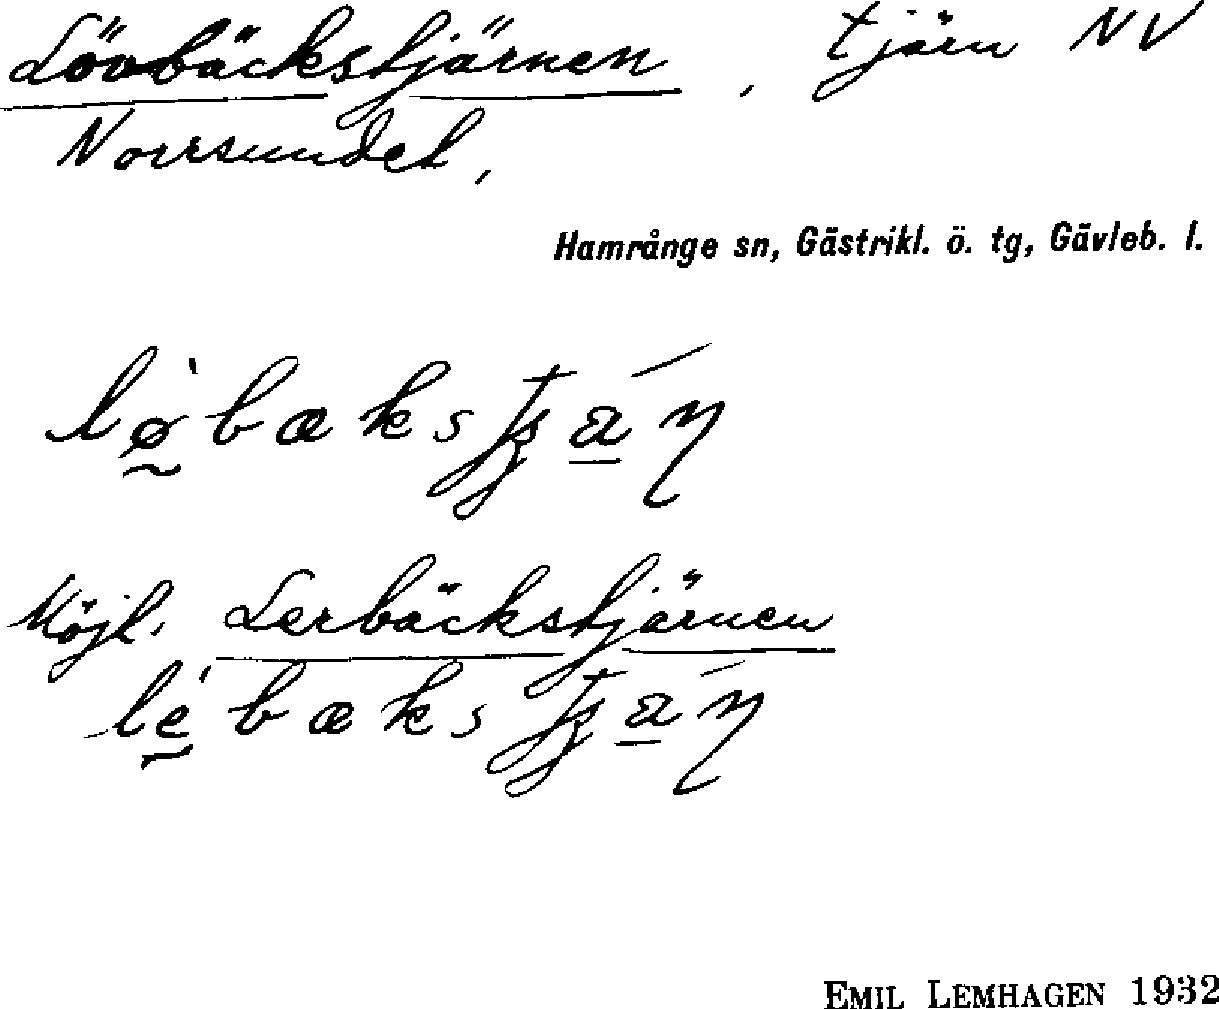 Lövbäckstjärnen, tjärn NV
Norrsundet,
Hamrånge sn, Gästrikl. ö. tg, Gävleb. l.
Möjl. Lerbäckstjärnen
EMIL LEMHAGEN 1932